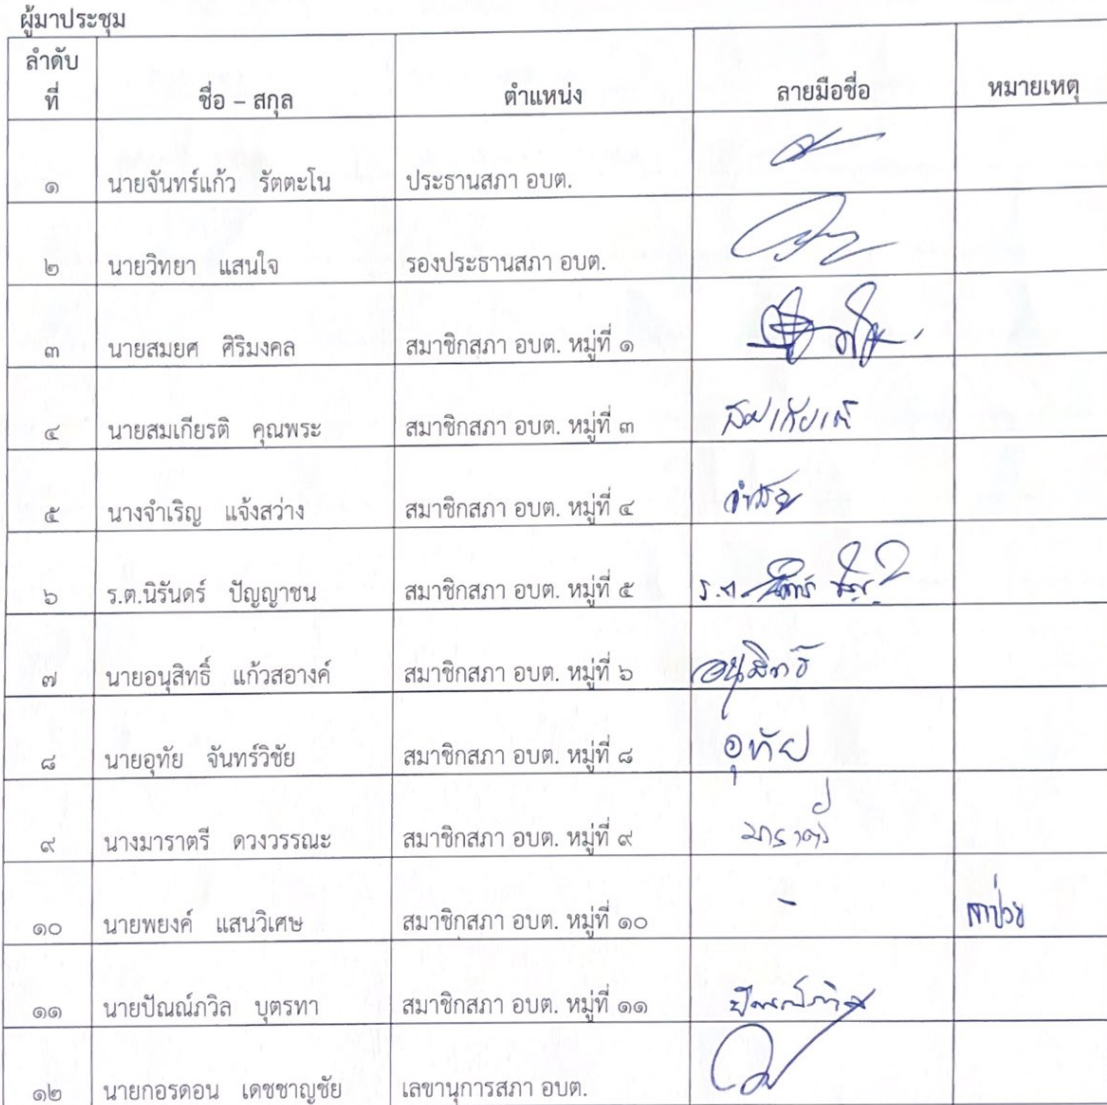 ผู้มาประชุม
ลำดับที่ ชื่อ – สกุล ตำแหน่ง ลายมือชื่อ หมายเหตุ
๑ นายจันทร์แก้ว รัตตะโน ประธานสภา อบต.
๒ นายวิทยา แสนใจ รองประธานสภา อบต.
๓ นายสมยศ ศิริมงคล สมาชิกสภา อบต. หมู่ที่ ๑
๔ นายสมเกียรติ คุณพระ สมาชิกสภา อบต. หมู่ที่ ๓ สมเกียรติ
๕ นางจำเริญ แจ้งสว่าง สมาชิกสภา อบต. หมู่ที่ ๔ จำเริญ
๖ ร.ต.นิรันดร์ ปัญญาชน สมาชิกสภา อบต. หมู่ที่ ๕ ร.ต.
๗ นายอนุสิทธิ์ แก้วสอางค์ สมาชิกสภา อบต. หมู่ที่ ๖ อนุสิทธิ์
๘ นายอุทัย จันทร์วิชัย สมาชิกสภา อบต. หมู่ที่ ๘ อุทัย
๙ นางมาราตรี ดวงวรรณะ สมาชิกสภา อบต. หมู่ที่ ๙ มาราตรี
๑๐ นายพยงค์ แสนวิเศษ สมาชิกสภา อบต. หมู่ที่ ๑๐ - ลาป่วย
๑๑ นายปัณณ์ภวิล บุตรทา สมาชิกสภา อบต. หมู่ที่ ๑๑ ปัณณ์ภวิล
๑๒ นายกอรดอน เดชชาญชัย เลขานุการสภา อบต.